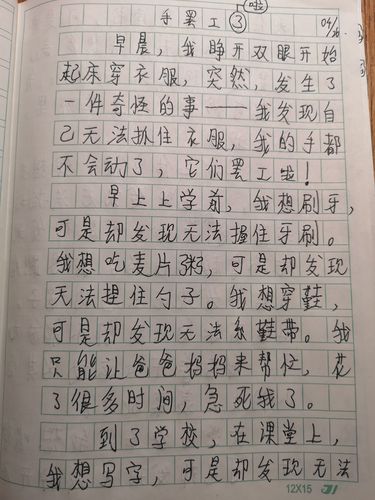 手罢工③啦
04/26
早晨，我睁开双眼开始
起床穿衣服，突然，发生了
一件奇怪的事——我发现自
己无法抓住衣服，我的手都
不会动了，它们罢工啦！
早上上学前，我想刷牙，
可是却发现无法握住牙刷。
我想吃麦片粥，可是却发现
无法捏住勺子。我想穿鞋，
可是却发现无法系鞋带。我
只能让爸爸妈妈来帮忙，花
了很多时间，急死我了。
到了学校，在课堂上，
我想写字，可是却发现无法
12X15